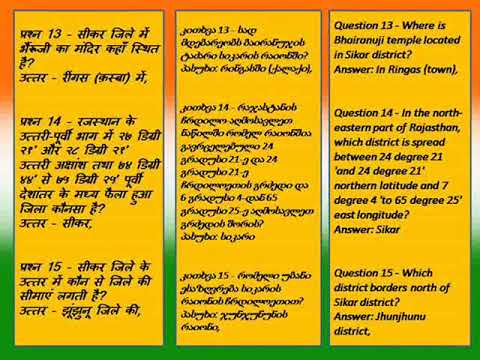 प्रश्न 13 - सीकर जिले में
भैंरूजी का मंदिर कहाँ स्थित
है?
उत्तर - रींगस (क़स्बा) में,
प्रश्न 14 - राजस्थान के
उत्तरी-पूर्वी भाग में २७ डिग्री
२१' और २८ डिग्री २१'
उत्तरी अक्षांश तथा ७४ डिग्री
४४' से ७५ डिग्री २५' पूर्वी
देशांतर के मध्य फैला हुआ
जिला कौनसा है?
उत्तर - सीकर,
प्रश्न 15 - सीकर जिले के
उत्तर में कौन से जिले की
सीमाएं लगती है?
उत्तर - झूंझुनू जिले की,
კითხვა 13 - სად
მდებარეობს ბაირანუჯის
ტაძარი სიკარის რაიონში?
პასუხი: რინგასში (ქალაქი),
კითხვა 14 - რაჯასტანის
ჩრდილო-აღმოსავლეთ
ნაწილში რომელ რაიონშია
გავრცელებული 24
გრადუსი 21-ე და 24
გრადუსი 21-ე
ჩრდილოეთის გრძედი და
6 გრადუსი 4-დან 65
გრადუსი 25-ე აღმოსავლეთ
გრძედის შორის?
პასუხი: სიკარი
კითხვა 15 - რომელი უბანი
ესაზღვრება სიკარის
რაიონის ჩრდილოეთით?
პასუხი: ჯუნჯუნუნის
რაიონი,
Question 13 - Where is
Bhairanuji temple located
in Sikar district?
Answer: In Ringas (town),
Question 14 - In the north-
eastern part of Rajasthan,
which district is spread
between 24 degree 21
'and 24 degree 21'
northern latitude and 7
degree 4 'to 65 degree 25'
east longitude?
Answer: Sikar
Question 15 - Which
district borders north of
Sikar district?
Answer: Jhunjhunu
district,